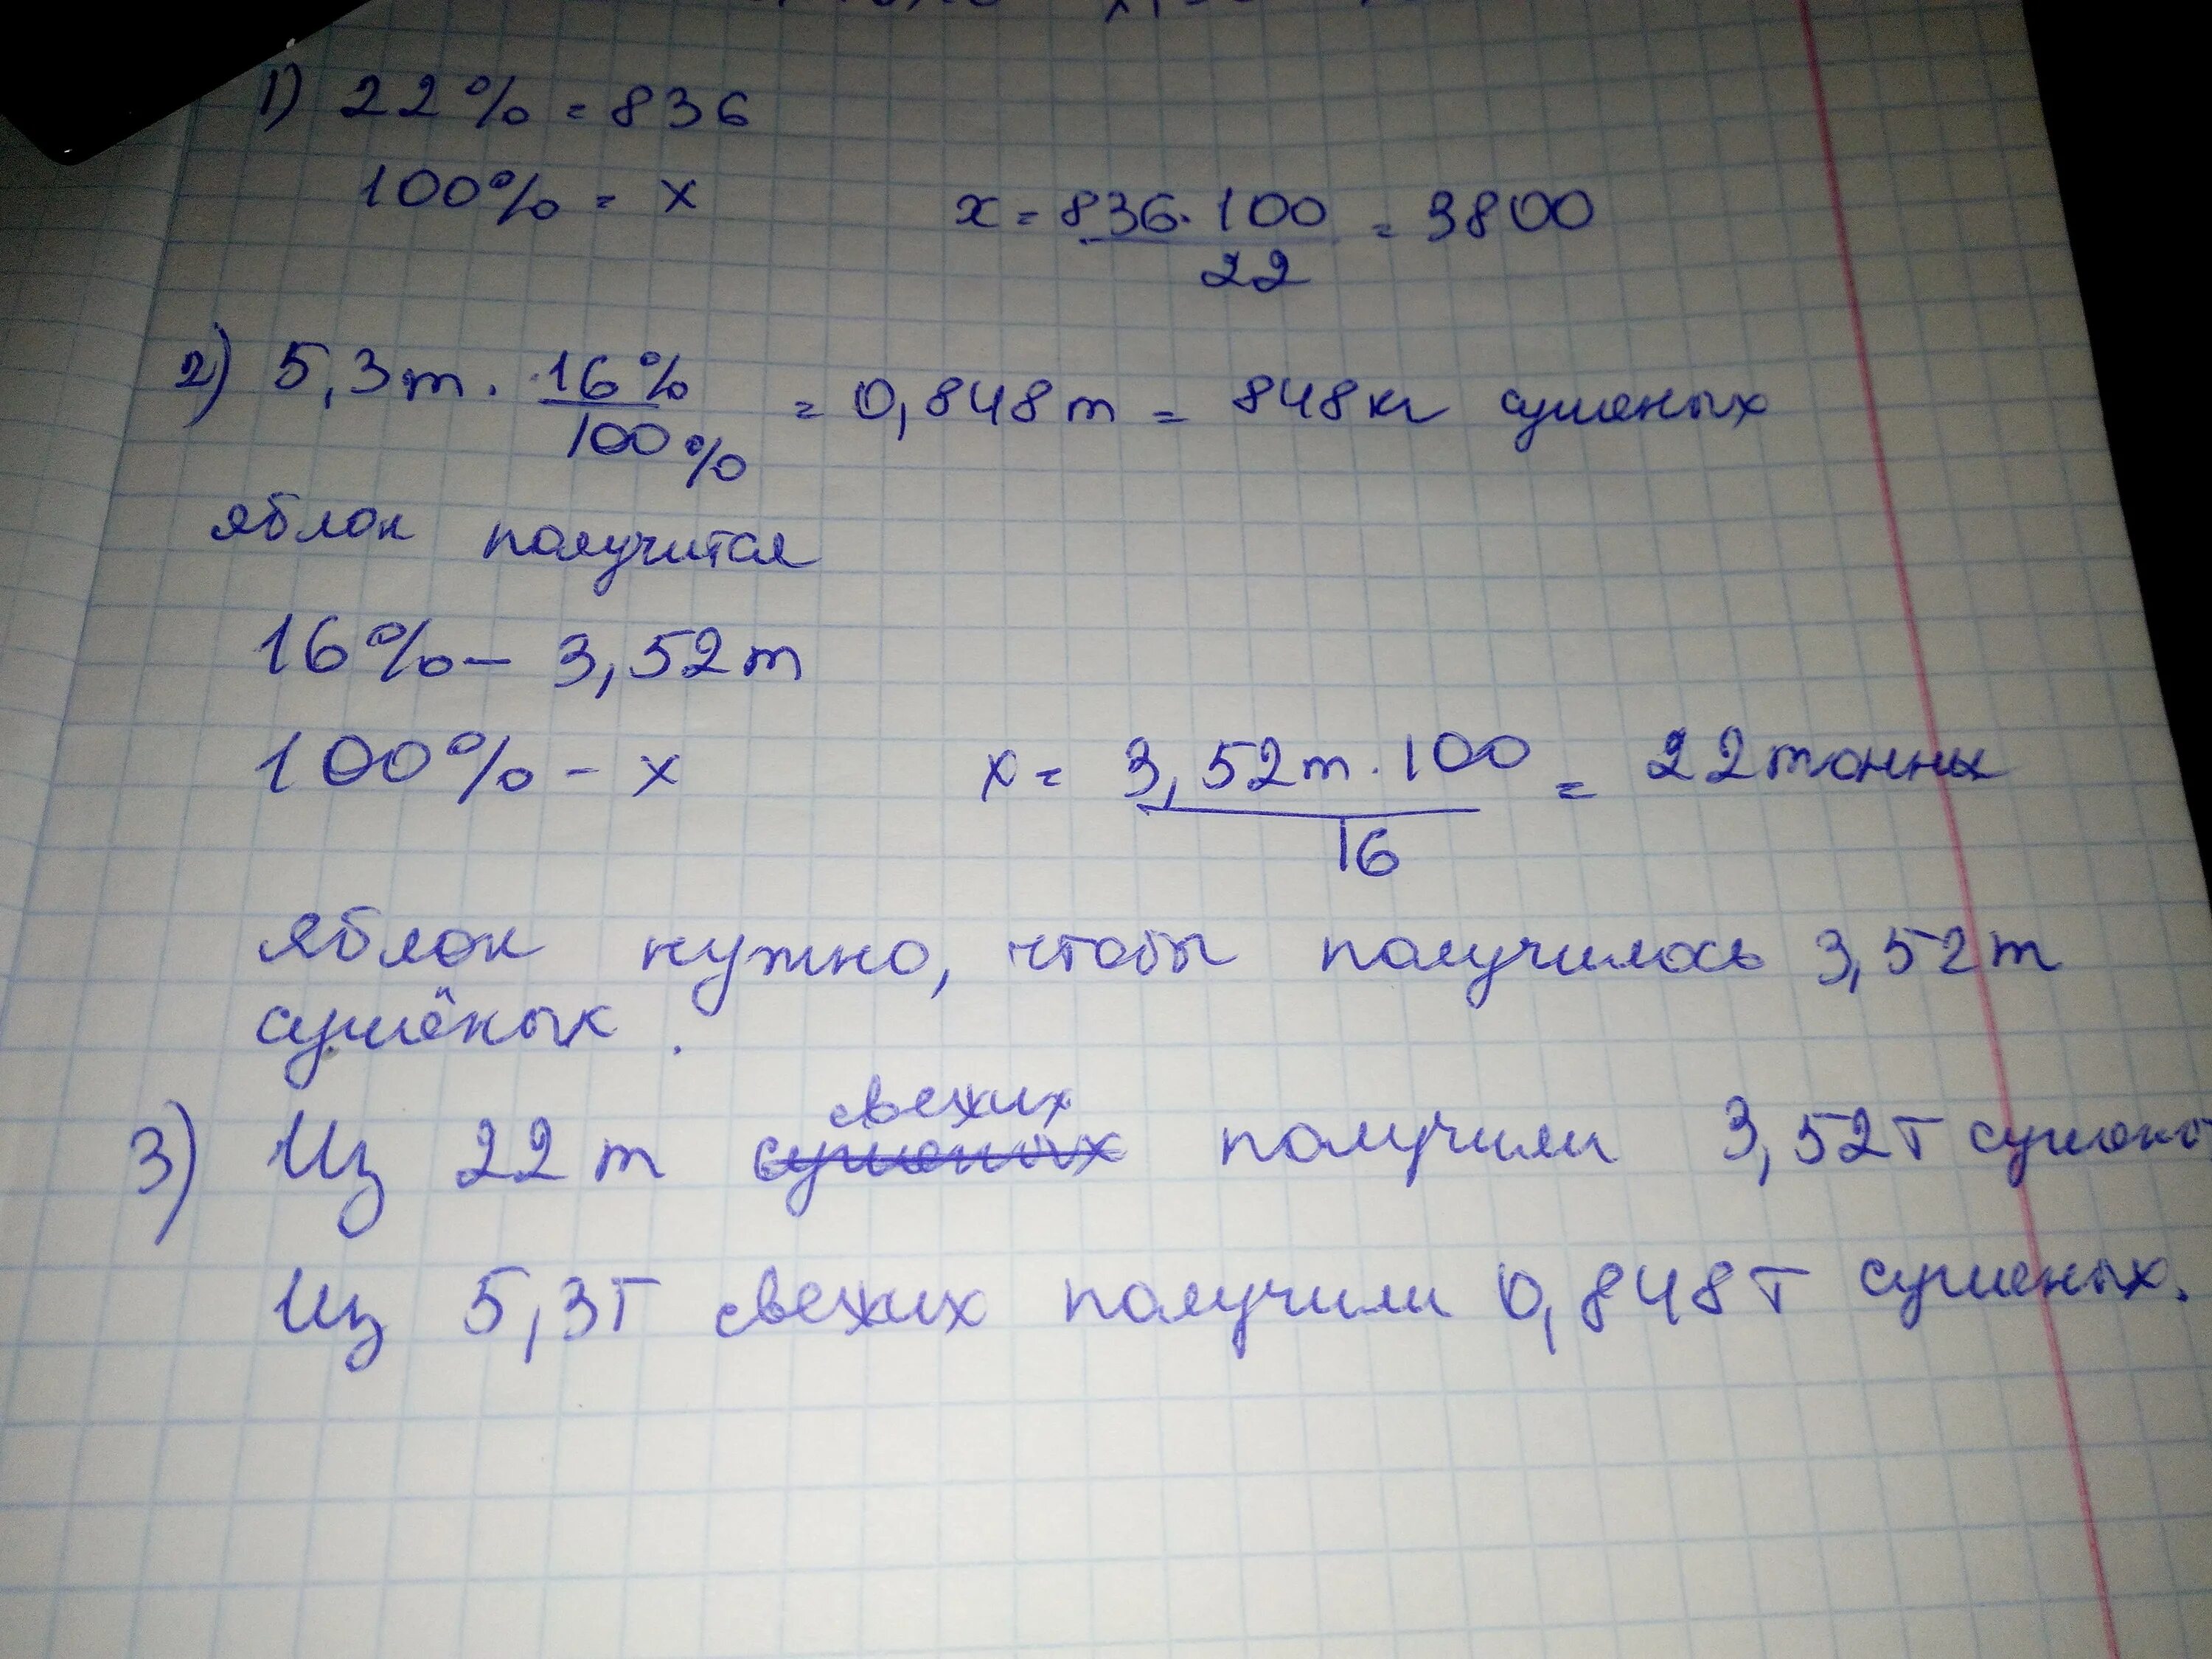 1) 22% = 836
100% = x
x = 836·100 / 22 = 3800
2) 5,3т · 16% / 100% = 0,848т = 848кг сушеных
яблок получится
16% – 3,52т
100% – x
x = 3,52т · 100 / 16 = 22тонны
яблок нужно, чтобы получилось 3,52т
сушёных.
свежих
3) Из 22т сушеных получили 3,52Т
Из 5,3Т свежих получили 0,848Т сушеных.